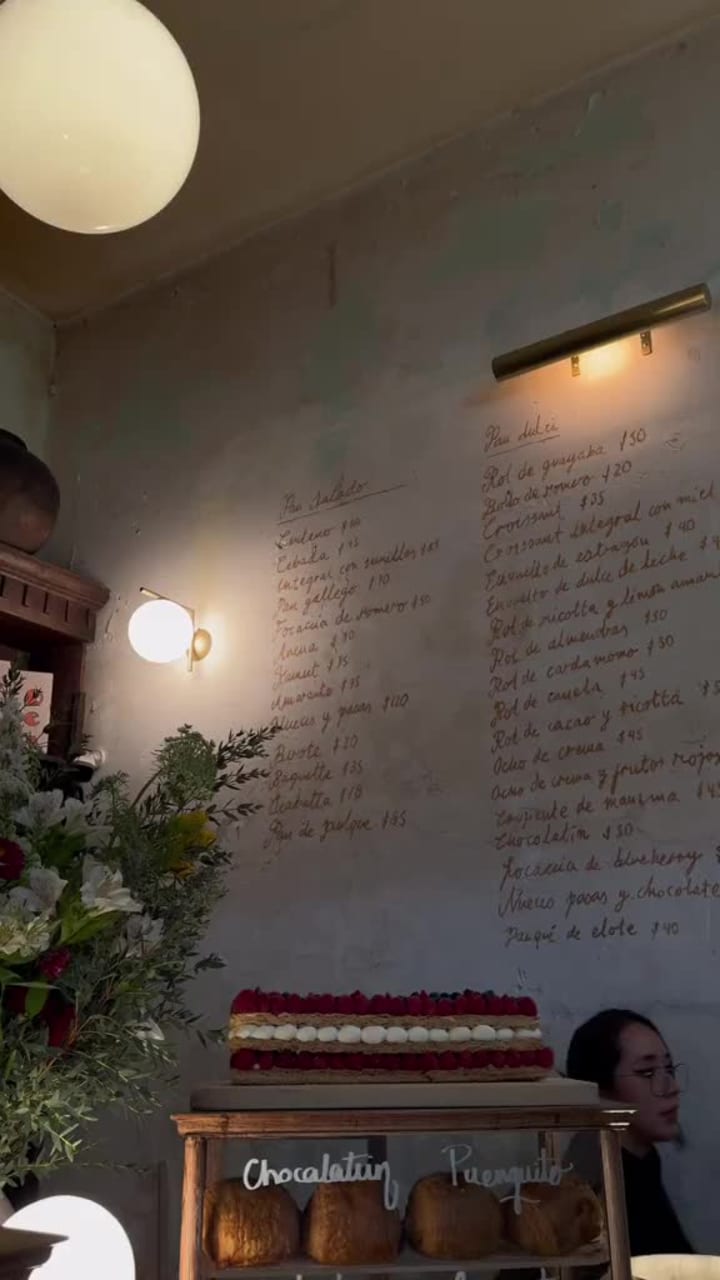 Pan Salado
Centeno $60
Cebada $45
Integral con semillas $85
Pan gallego $70
Focaccia de romero $50
Avena $70
Kamut $75
Amaranto $75
Nueces y pasas $120
Birote $20
Baguette $35
Ciabatta $18
Pan de pulque $85
Pan dulce
Rol de guayaba $50
Bollo de romero $20
Croissant $35
Croissant integral con miel
Envuelto de estragon $40
Envuelto de dulce de leche
Rol de ricotta y limón
Rol de almendras $50
Rol de cardamomo $50
Rol de canela $45
Rol de cacao y ricotta
Ocho de crema $45
Ocho de crema y frutos rojos
de manzana
Chocolatín $50
Focaccia de blueberry
Nueces pasas y chocolate
Panqué de elote $40
Chocolatín
Puerquito